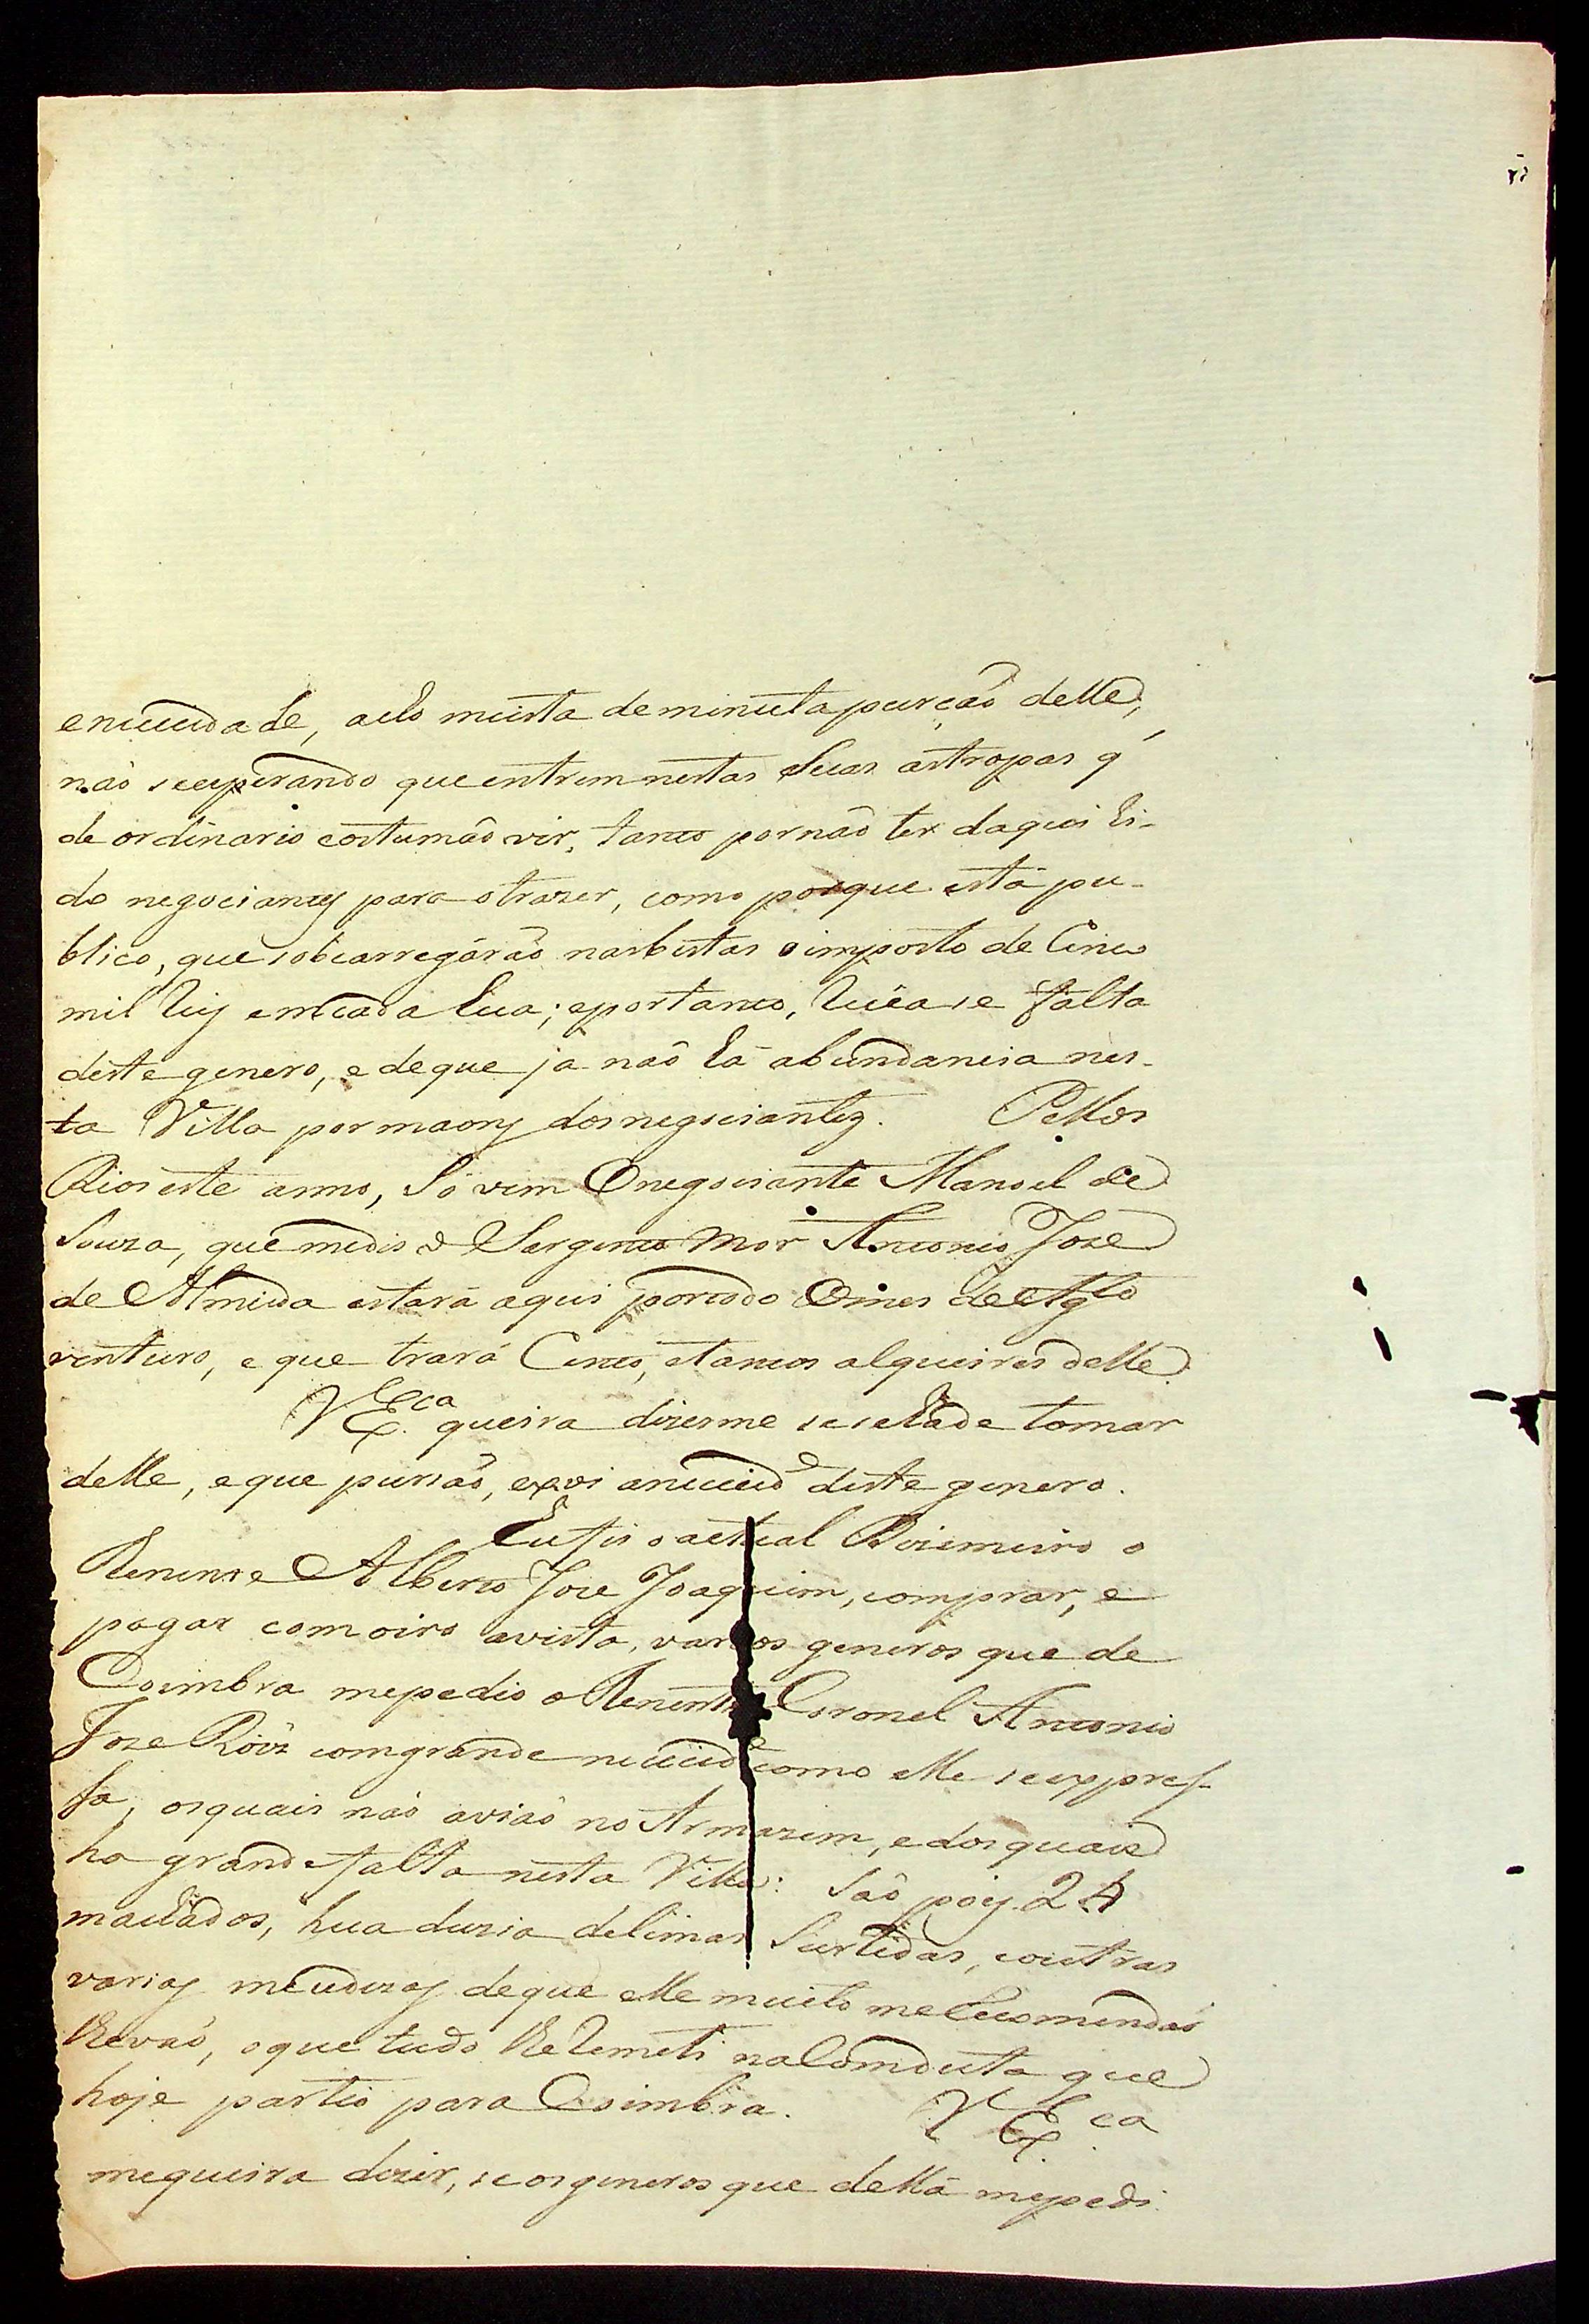 encuidade, avis meista de minuta purção delle,
não se esperando que entrem nestas Seccas as tropas q'
de ordinario costumão vir, tanto por não ter daqui hi-
do negociantes para o trazer, como porque está pu-
blico, que sobcarregárão nas bestas o imposto de Cinco
mil reis em cada hua; eportanto, recea se falta
deste genero, e de que já não há abundancia nes-
ta Villa por maons dos negociantes. Pellos
Rios este anno, Só vem O negociante Manoel de
Souza, que me dis o Sargento mor Antonio Jozé
de Almeida estará aqui por todo O mes de Agto
venturo, e que trará Cento, e tantos alqueires delle.
V Exca queira dizerme se se há de tomar
delle, e que pursão, ex vi a necide deste genero.
Eu fis o actual Thizoureiro o
Tenente Alberto Joze Joaquim, comprar, e
pagar com oiro avista, varios generos que de
Coimbra me pedio o Tenente Coronel Antonio
Joze Roiz com grande necide como elle se expres-
sa, os quais não avião no Armazem, e dos quais
ha grande falta nesta Villa: São pois 24
machados, hua duzia de limas Surtidas, e outras
varias meudezas de que elle muito me Recomendás
Levão, o que tudo lhe Remeti na Conduta que
hoje partio para Coimbra. V Exca
me queira dizer, se os generos que de lá me pedi